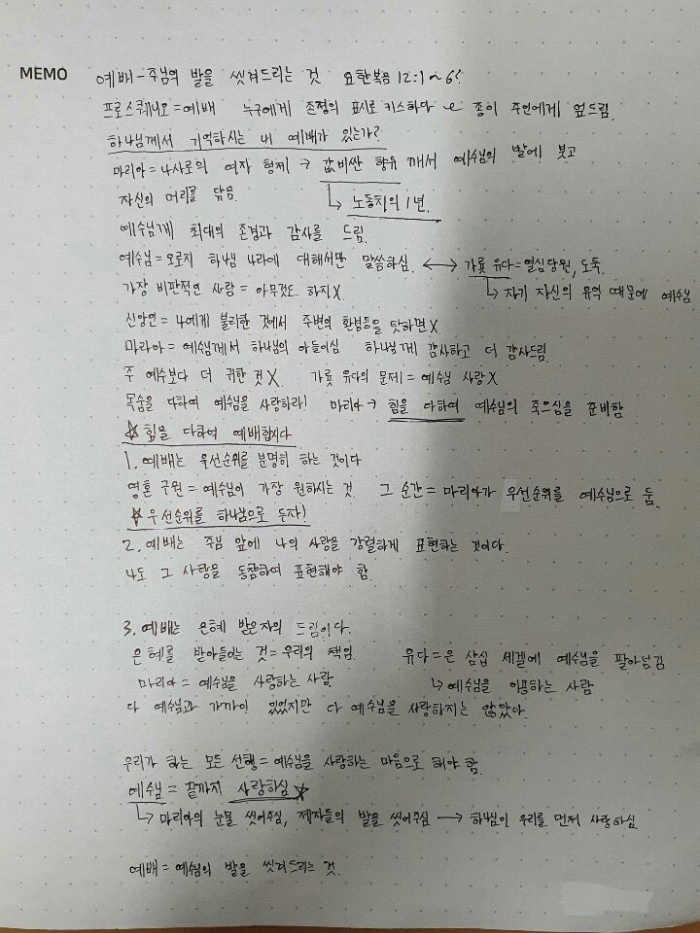 MEMO 예배 - 주님의 발을 씻겨드리는 것 요한복음 12:1~6?
프로스퀴네오 = 예배 누구에게 존경의 표시로 키스하다 e 종이 주인에게 엎드림.
하나님께서 기억하시는 내 예배가 있는가?
마리아 = 나사로의 여자 형제 → 값비싼 향유 깨서 예수님의 발에 붓고
자신의 머리를 닦음. ↳ 노동치의 1년.
예수님께 최대의 존경과 감사를 드림.
예수님 = 오로지 하나님 나라에 대해서만 말씀하심. ↔ 가룟 유다 = 열심당원, 도둑.
가장 비판적인 사람 = 아무것도 하지X ↳ 자기 자신의 유익 때문에 예수님
신앙인 = 나에게 불리한 것에서 주변의 환경등을 탓하면 X
마리아 = 예수님께서 하나님의 아들이심 하나님께 감사하고 더 감사드림.
주 예수보다 더 귀한 것 X. 가룟 유다의 문제 = 예수님 사랑 X
목숨을 다하여 예수님을 사랑하라! 마리아 → 힘을 다하여 예수님의 죽으심을 준비함
☆ 힘을 다하여 예배합시다
1. 예배는 우선순위를 분명히 하는 것이다
영혼 구원 = 예수님이 가장 원하시는 것 그 순간 = 마리아가 우선순위를 예수님으로 둠.
☆ 우선순위를 하나님으로 두자!
2. 예배는 주님 앞에 나의 사랑을 강렬하게 표현하는 것이다.
나도 그 사랑을 동참하여 표현해야 함.
3. 예배는 은혜 받은자의 드림이다.
은혜를 받아들이는 것 = 우리의 책임. 유다 = 은 삼십 세겔에 예수님을 팔아넘김
마리아 = 예수님을 사랑하는 사람. ↳ 예수님을 이용하는 사람
다 예수님과 가까이 있었지만 다 예수님을 사랑하지는 않았다.
우리가 하는 모든 선행 = 예수님을 사랑하는 마음으로 해야 함.
예수님 = 끝까지 사랑하심 ☆
↳ 마리아의 눈물 씻어주심, 제자들의 발을 씻어주심 → 하나님이 우리를 먼저 사랑하심
예배 = 예수님의 발을 씻겨드리는 것.